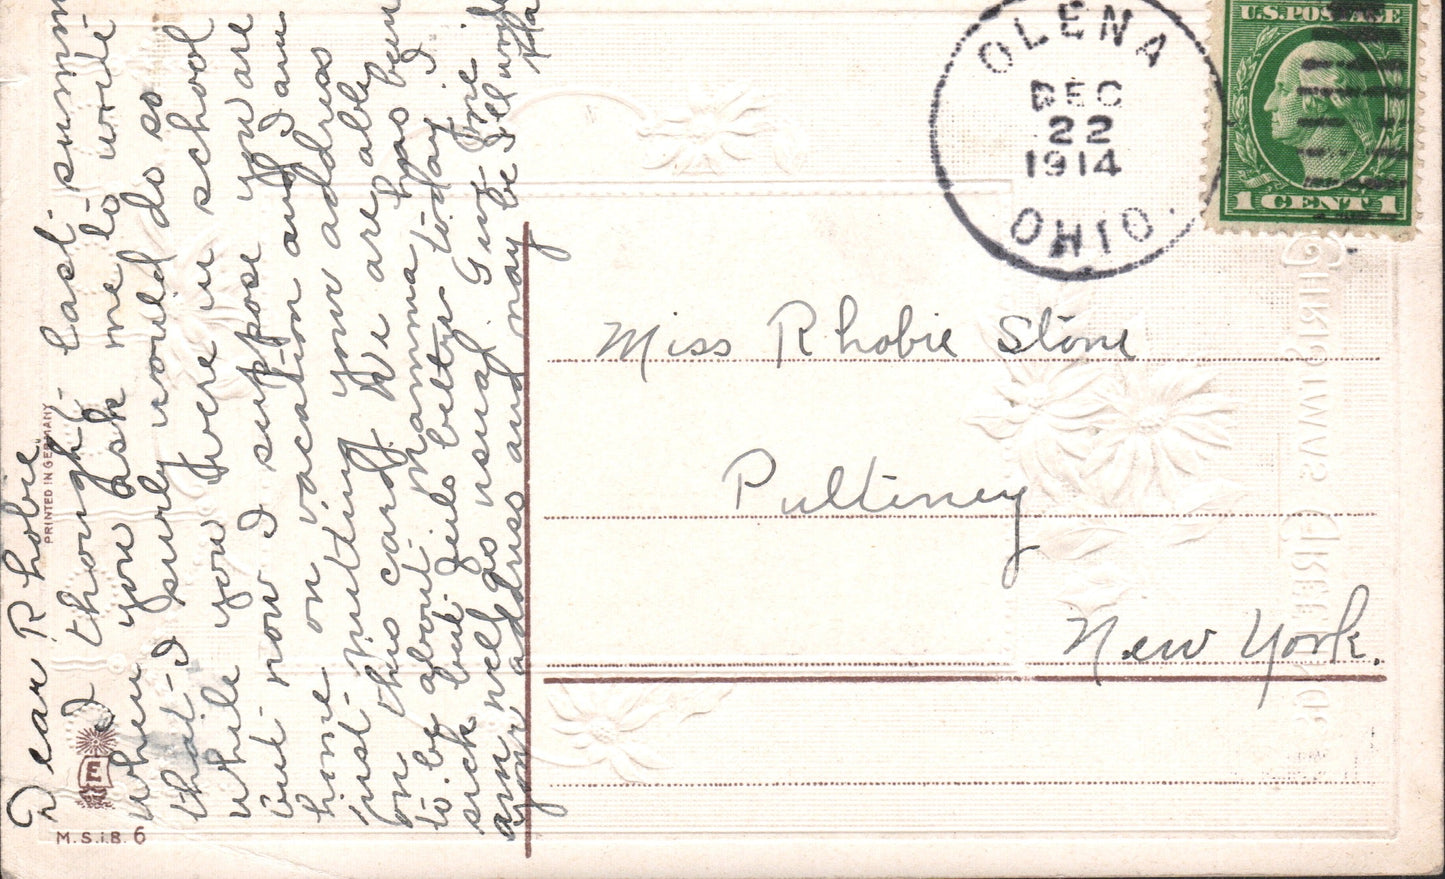 Dear Rhobie
I thought last summ
when you ask me to write
that I surly would do so
while you were in school
but now I suppose you are
home on vacation and I am
just putting your address
on this card. We are able
to be about. Mamma has been
sick but feels better today I
am well as usual. Give me
your address and may be I'll write
U.S. POSTAGE
1 CENT 1
OLENA
DEC
22
1914
OHIO.
Miss Rhobie Stone
Pulteney
New York.
CHRISTMAS GREETINGS
PRINTED IN GERMANY
M.S.i.B. 6